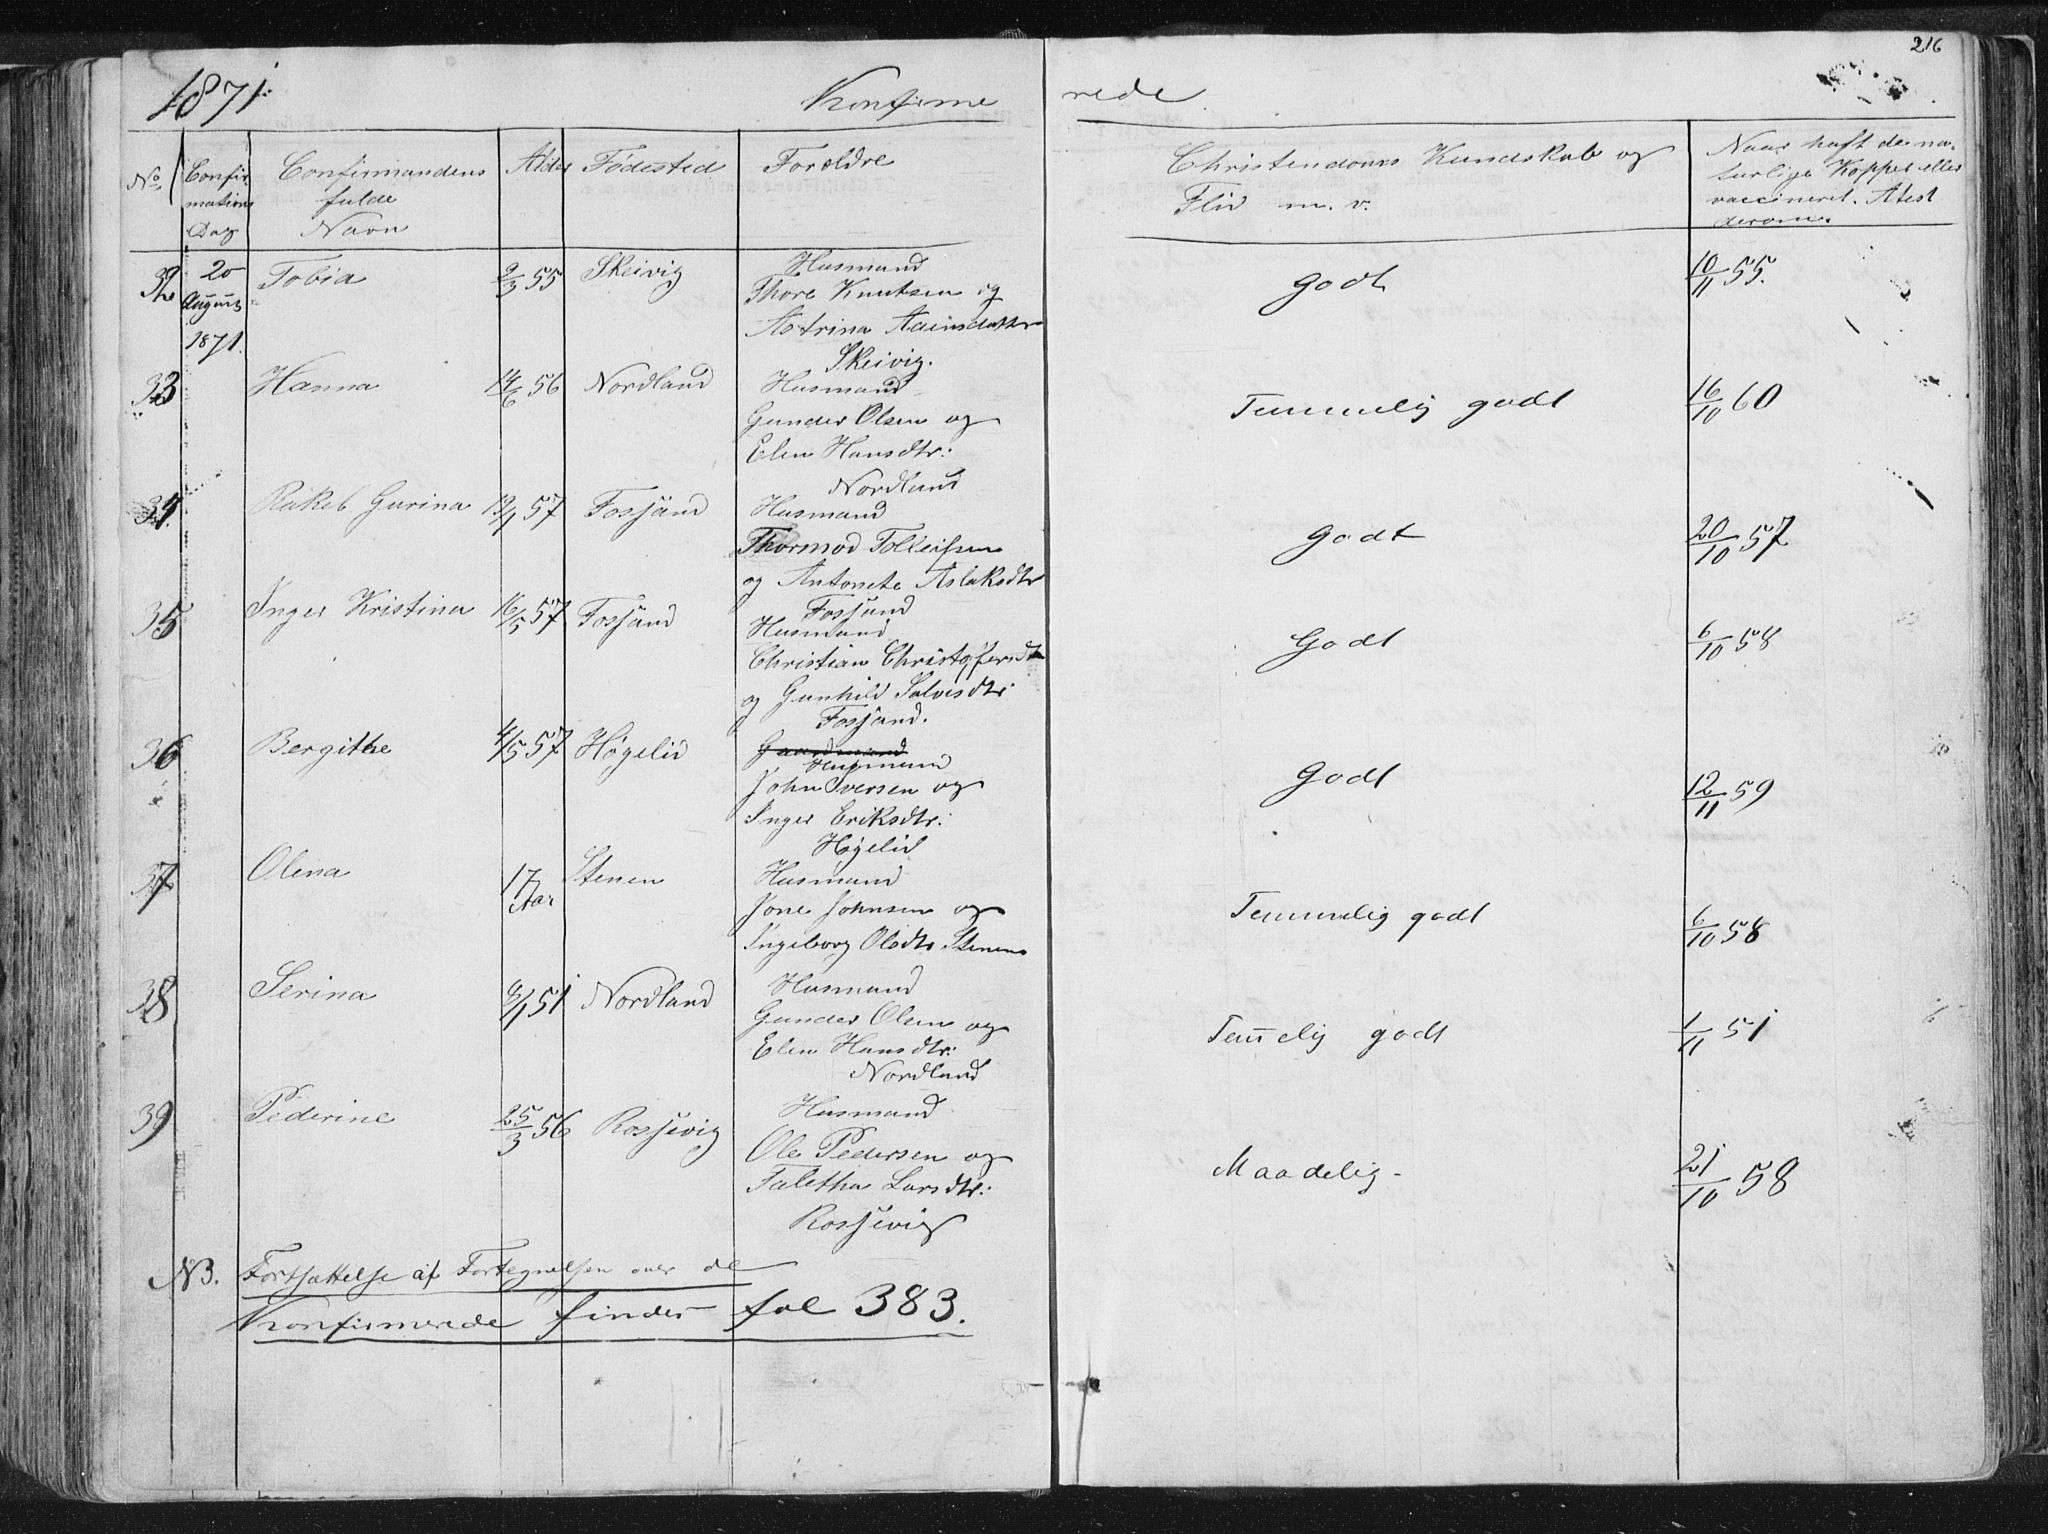 216
1871.
Konfirme rede.
No
Confir-
mations
Dag
Confirmandens
fulde
Navn
Alder
Fødested
Forældre
Christendoms Kundskab og
Flid m. v.
Naar haft de na-
turlige Kopper eller
vaccineret. Atest
derom.
32
20
August
1871.
Tobia
2/3 55
Skeivig
Husmand
Thore Knutsen og
Skeivig.
Godt
10/11 55.
33
Hanna
14/6 56
Nordland
Husmand
Gunder Olsen og
Elen Hansdtr:
Nordland
Temmelig godt
16/10 60
34
Rakel Gurina
57
Fosjand
Husmand
Thormod Tolleifsen
og Antonete Aslaksdtr
Fosjand
Godt
20/10 57
35
Inger Kristina
16/5 57
Fosjand
Husmand
Christian
og Gunhild Salvesdtr
Fosjand.
Godt
6/10 58
36
Bergithe
4/5 57
Høgelid
Gaardmand
Husmand
John Iversen og
Inger Eriksdtr:
Høgelid
Godt
12/11 59
37
Olena
17
Aar
Stenen
Husmand
Jone Johnsen og
Ingeborg Olsdtr Stenen
Temmelig godt
6/10 58
38
Serina
51
Nordland
Husmand
Gunder Olsen og
Elen Hansdtr:
Nordland
Temelig godt
1/11 51
39
Pederine
25/3 56
Rossevig
Husmand
Ole Pedersen og
Taletha Larsdtr:
Rossevig
Maadelig
21/10 58
NB. Fortsættelse af Fortegnelsen over de
Konfirmerede findes fol 383.